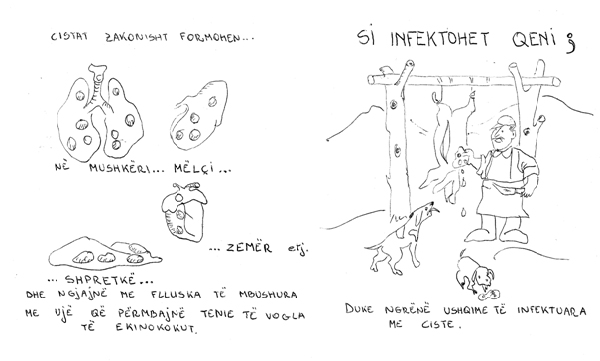 CISTAT ZAKONISHT FORMOHEN...
NË MUSHKËRI... MËLÇI...
... ZEMËR etj.
... SHPRETKË...
DHE NGJAJNË ME FLLUSKA TË MBUSHURA
ME UJË QË PËRMBAJNË TENIE TË VOGLA
TË EKINOKOKUT.
SI INFEKTOHET QENI ?
DUKE NGRËNË USHQIME TË INFEKTUARA
ME CISTE.